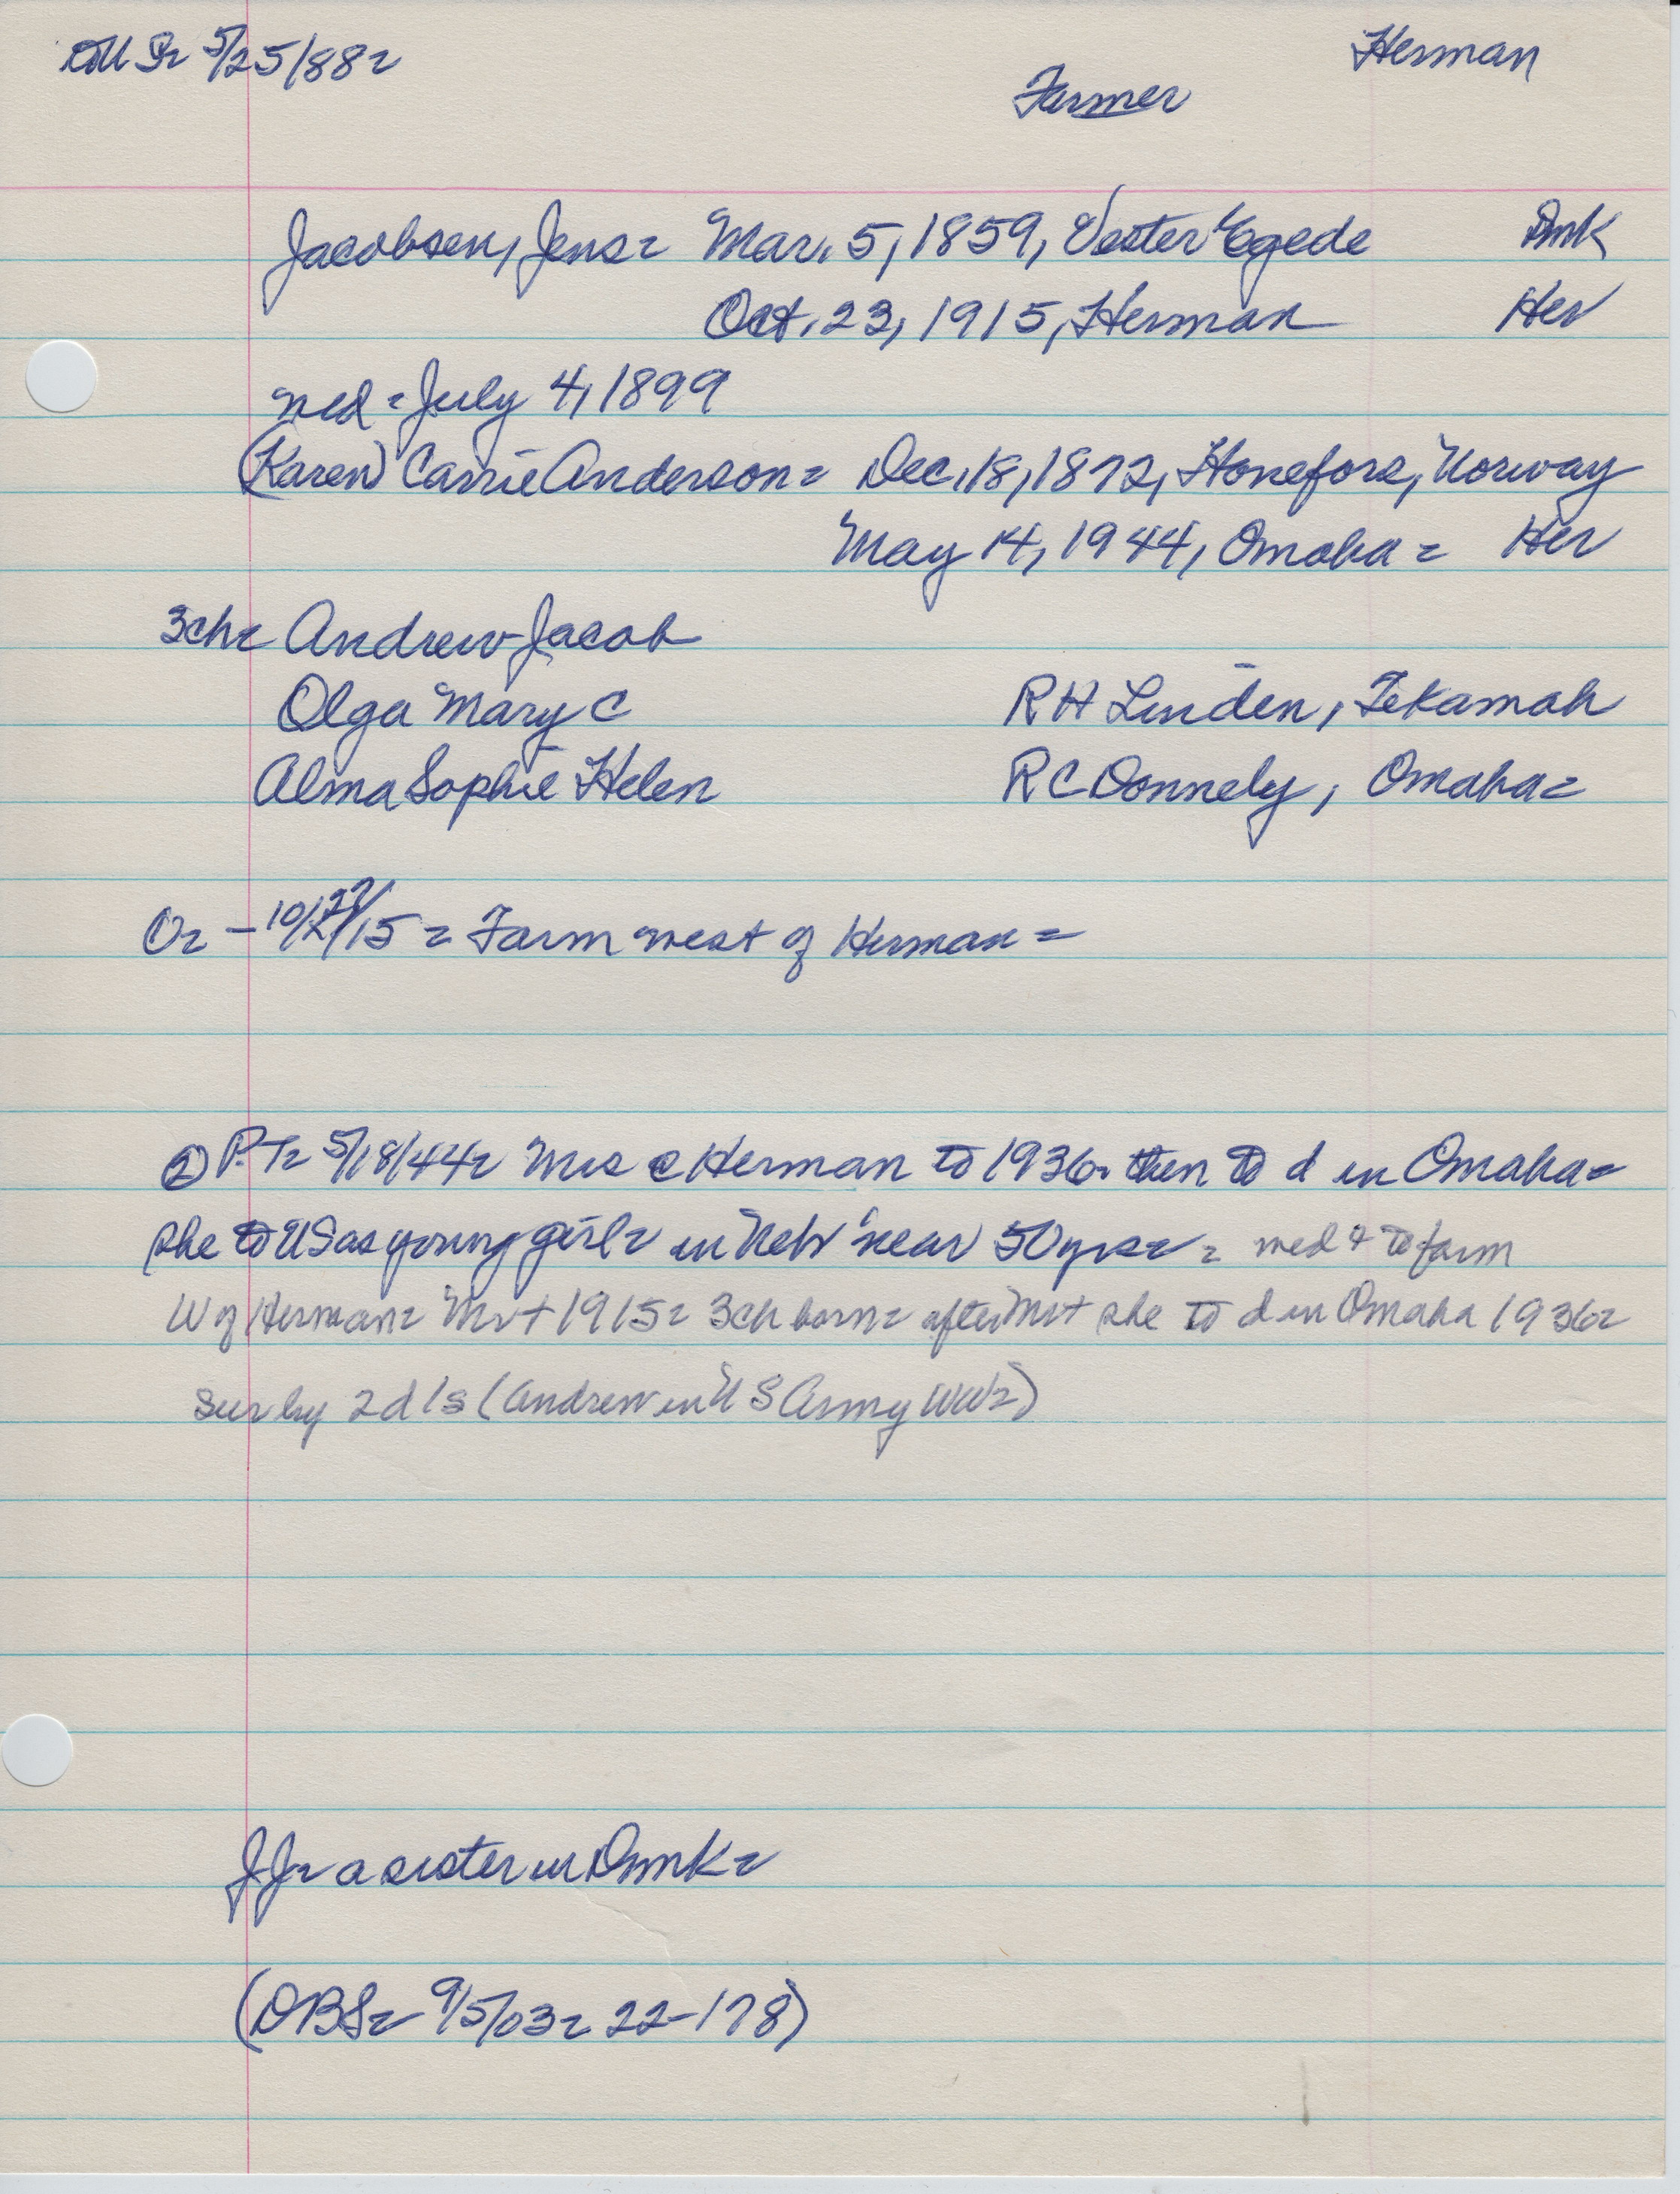 5/25/88= Herman
Farmer
Jacobsen, Jens= Mar. 5, 1859, Vester Egede Dmk
Oct. 23, 1915, Herman Her
med = July 4, 1899
(Karen) Carrie Anderson= Dec. 18, 1872, Honefors, Norway
May 14, 1944, Omaha = Her
3ch= Andrew Jacob
Olga Mary C R H Linden, Tekamah
Alma Sophie Helen R C Donnely, Omaha=
O= - 10/28/15 = Farm west of Herman =
② P.T= 5/18/44= Mrs @ Herman to 1936. then to d in Omaha=
she to US as young girl= in Neb near 50 yrs= = med & to farm
W of Herman= Mr + 1915= 3ch born= after Mr + she to d in Omaha 1936=
sur by 2d 1s (Andrew in US Army WW2)
JJ= a sister in Dmk=
(DBS= 9/5/03= 22-178)